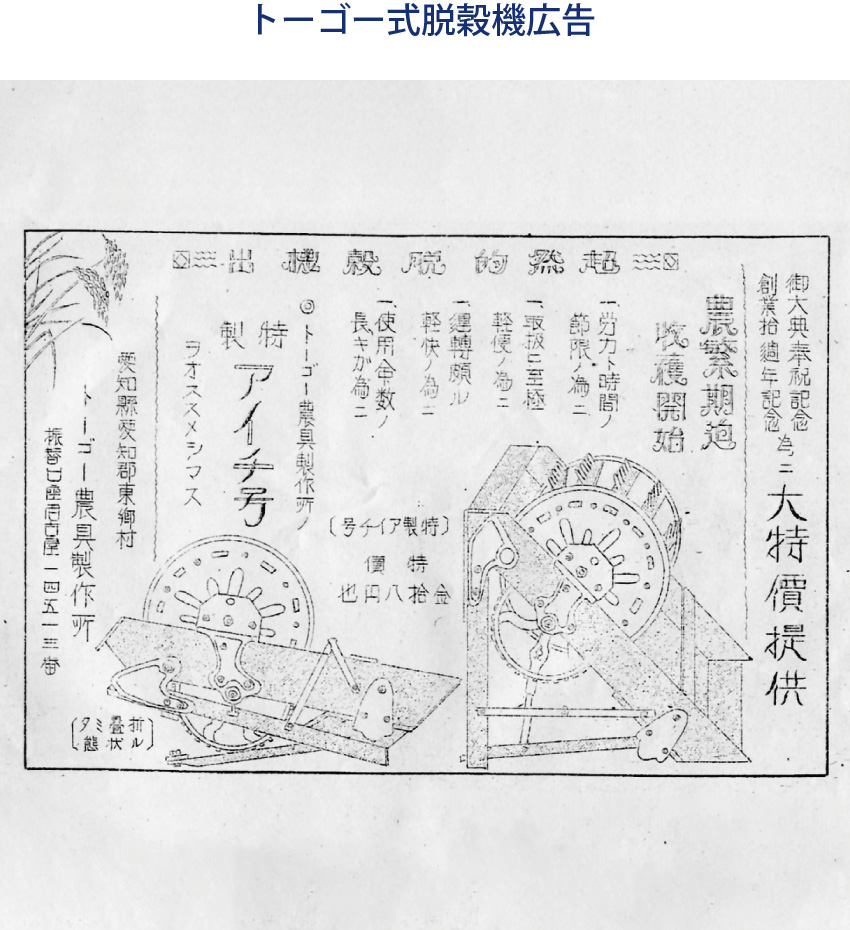 トーゴー式脱穀機広告
御大典奉祝記念
創業拾週年記念
為ニ
大特價提供
超然的脱穀機出
農繁期迫
收穫開始
一、労力ト時間ノ
節限ノ為ニ
一、取扱ヒ至極
軽便ノ為ニ
一、運轉頗ル
軽快ノ為ニ
一、使用命数ノ
長キガ為ニ
◎トーゴー農具製作所ノ
特製
アイチ号
ヲオススメシマス
(特製アイチ号)
特價
金拾八円也
愛知縣愛知郡東郷村
トーゴー農具製作所
振替口座名古屋一四五一三番
(折畳ミタ
ル状態)